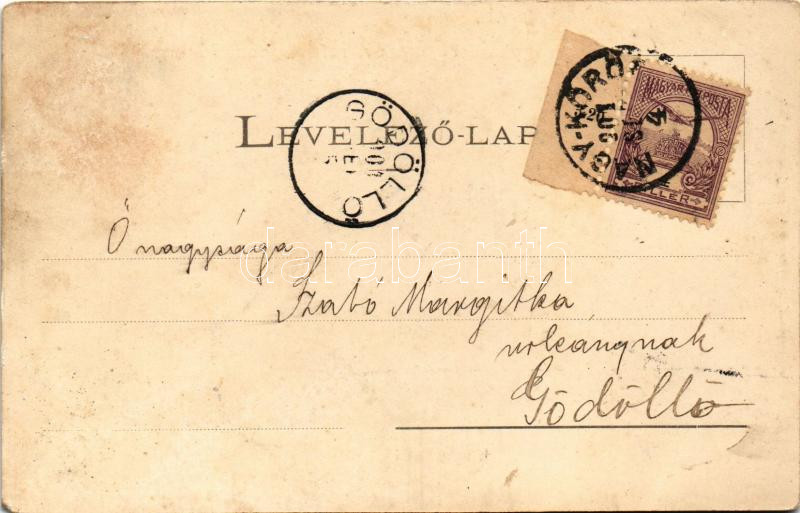 LEVELEZŐ-LAP
GÖDÖLLŐ
NAGY-KŐRÖS
MAGYAR KIR. POSTA
FILLÉR
Ő nagysága
Szabó Margitka
urleánynak
Gödöllő
darabanth